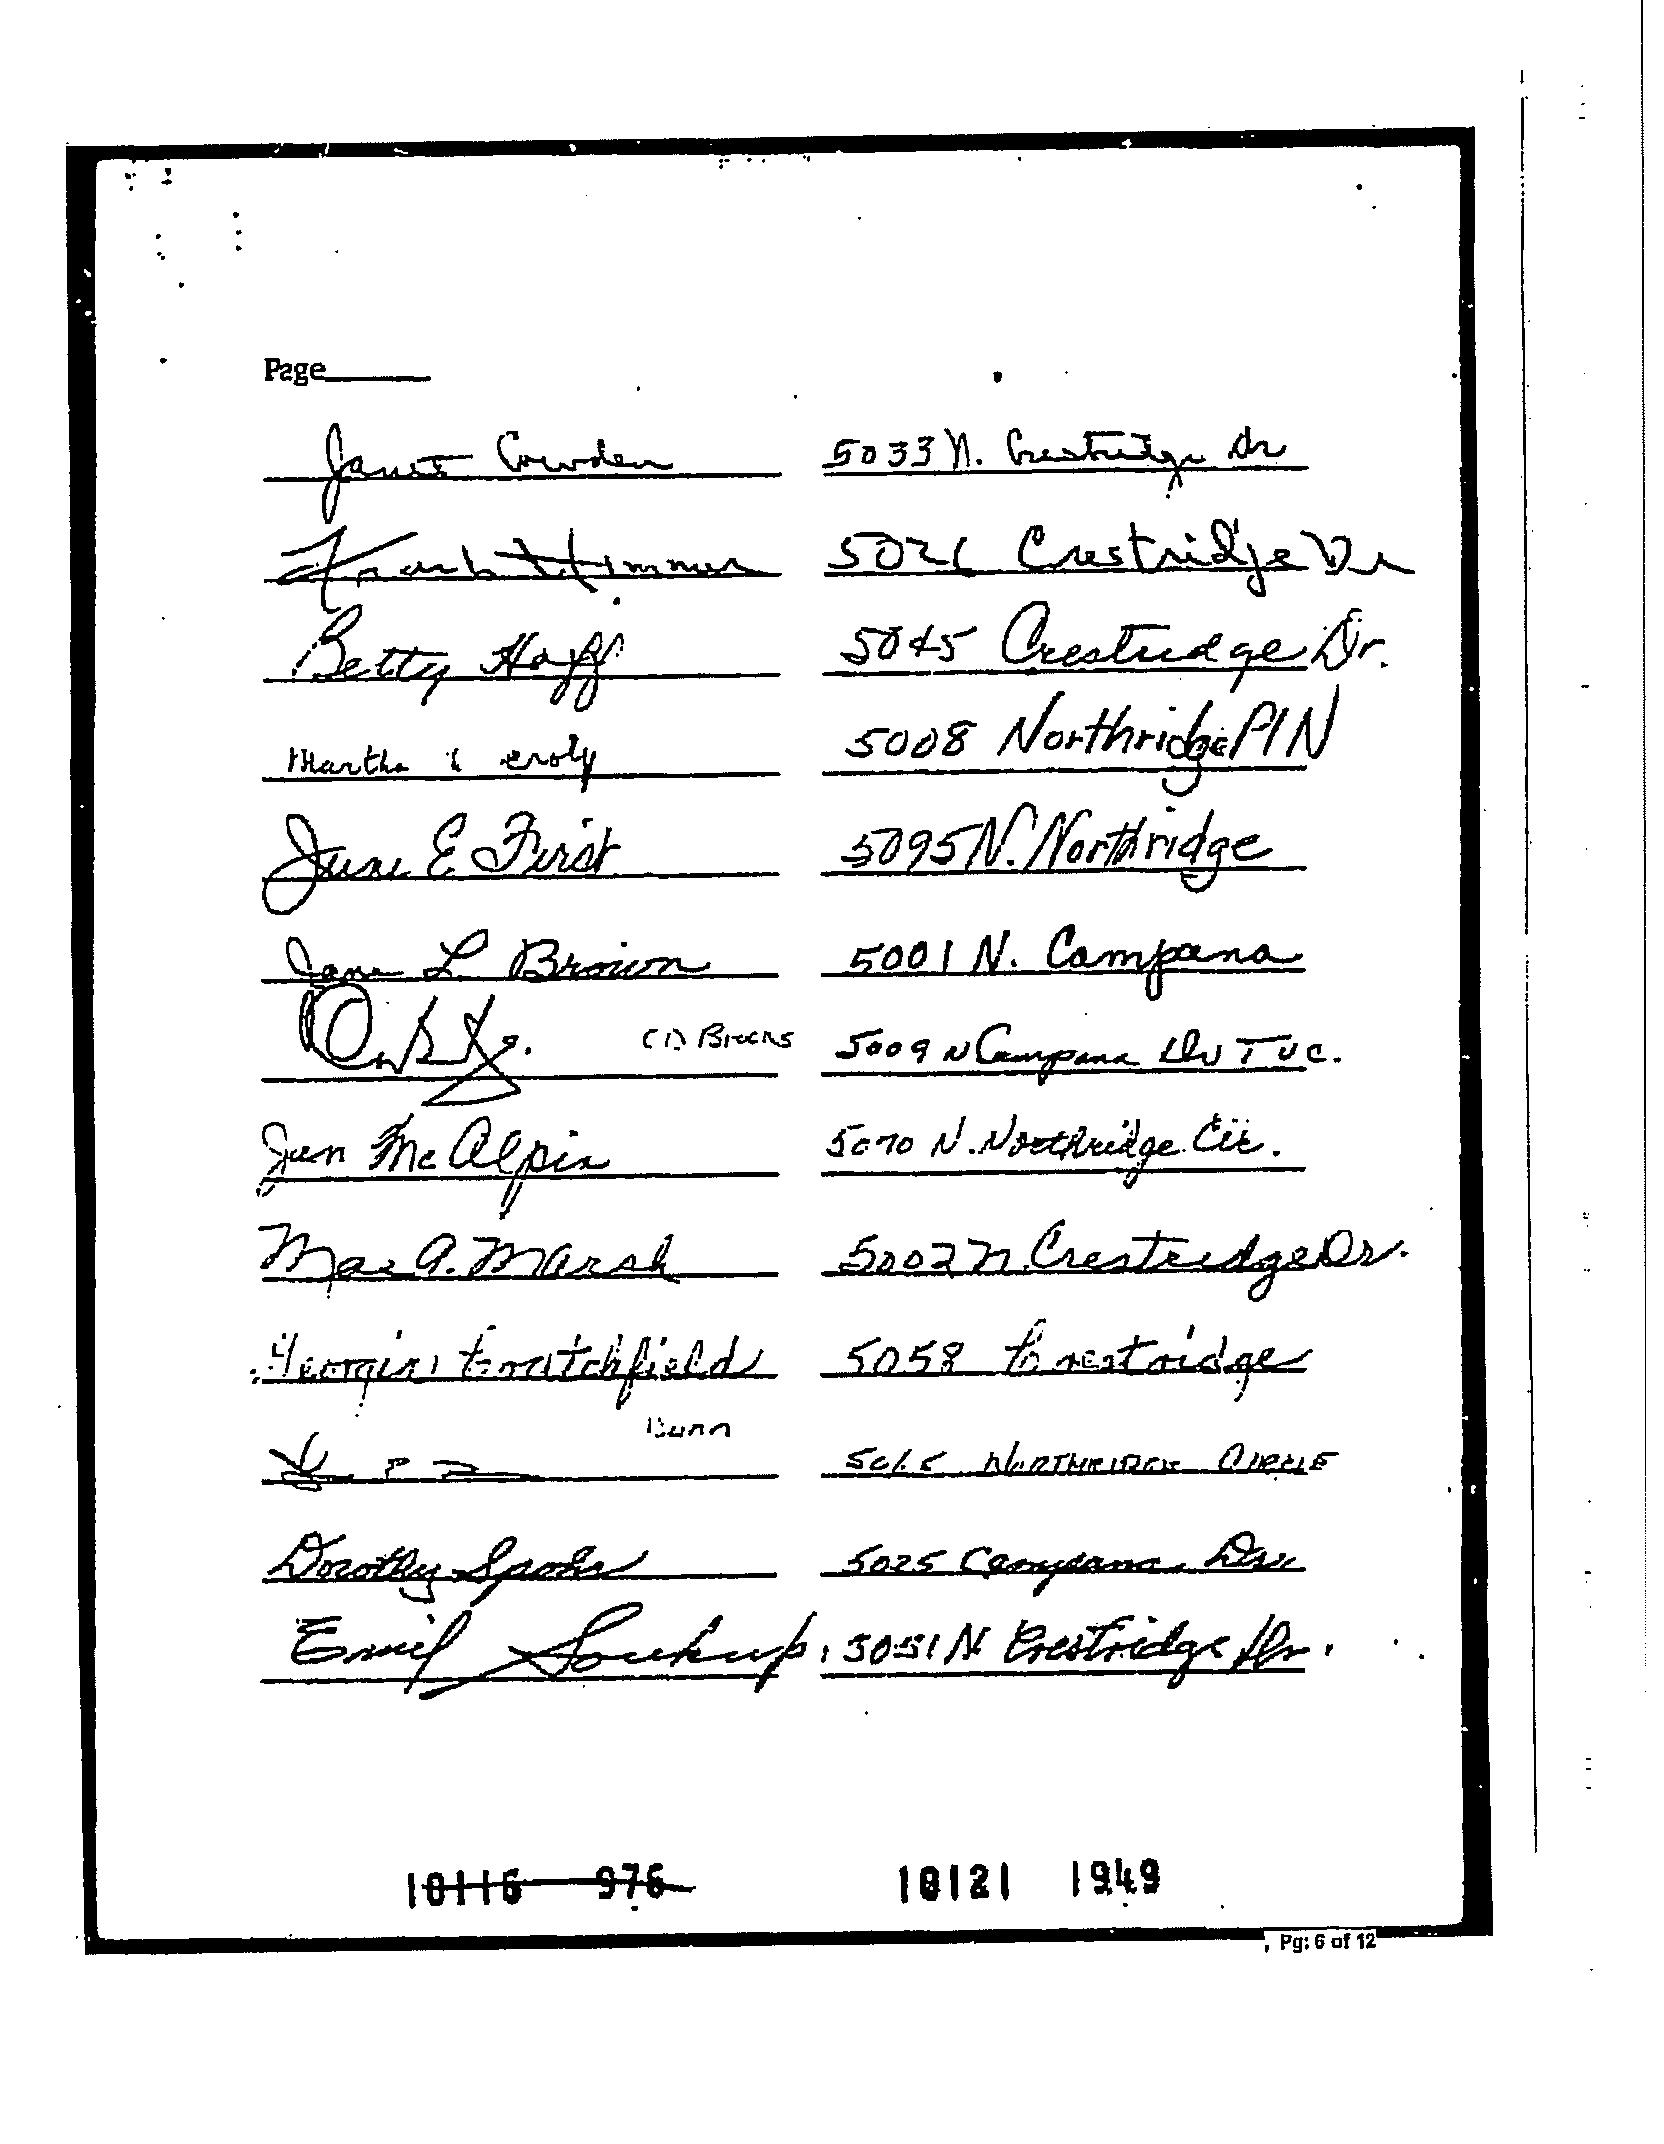 Page
Janet Cowden 5033 N. Crestridge Dr
Frank Himmer 5021 Crestridge Dr
Betty Hoff 5045 Crestridge Dr.
Martha 5008 Northridge Pl N
June E First 5095 N. Northridge
Jane L. Brown 5001 N. Campana
Brooks 5009 N Campana Dr Tuc.
Jun McAlpin 5070 N. Northridge Cir.
Mae A. Marsh 5002 N. Crestridge Dr.
Georgia Crutchfield 5058 Crestridge
Dunn
Northridge Circle
Dorothy Spohr 5025 Campana Dr.
Emil Soukup 5051 N Crestridge Dr.
10116 976 10121 1949
Pg: 6 of 12